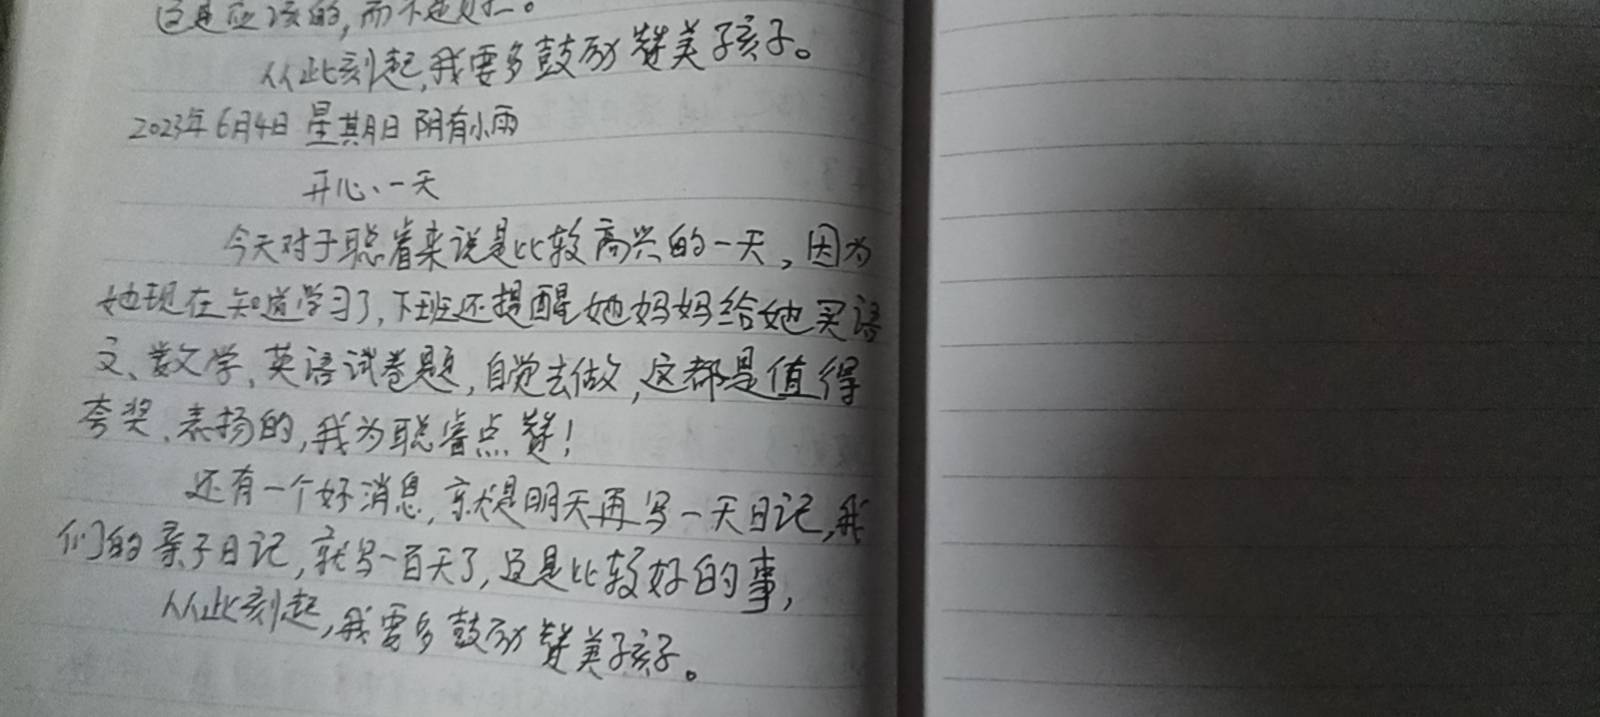 这是应该的,而不是
从此刻起,我要多鼓励赞美孩子。
2023年6月4日 星期日 阴有小雨
开心、一天
今天对于聪睿来说是比较高兴的一天,因为
她现在知道学习了,下班还提醒她妈妈给她买语
文、数学、英语试卷题,自觉去做,这都是值得
夸奖、表扬的,我为聪睿点赞!
还有一个好消息,就是明天再写一天日记,我
们的亲子日记,就写一百天了,这是比较好的事,
从此刻起,我要多鼓励赞美孩子。